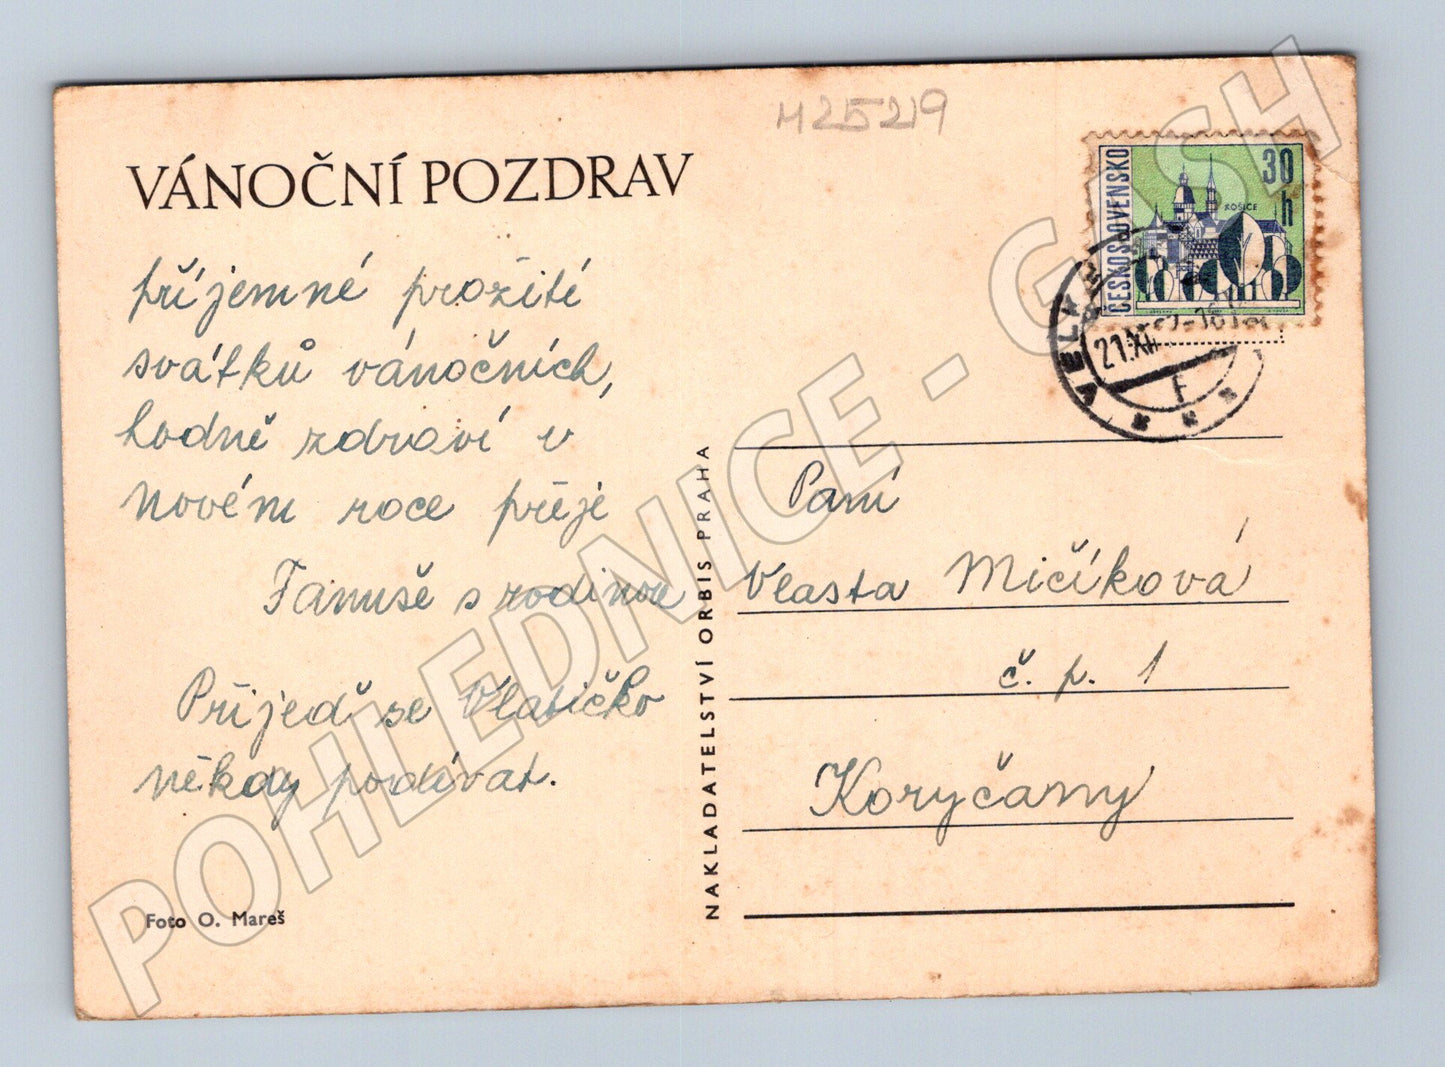 M25219
VÁNOČNÍ POZDRAV
příjemné prožití
svátků vánočních,
hodně zdraví v
Novém roce přeje
Fanuše s rodinou
Přijeď se Vlatičko
někdy podívat.
Foto O. Mareš
NAKLADATELSTVÍ ORBIS PRAHA
ČESKOSLOVENSKO
30
h
KOŠICE
VELK
21.XII.
F
Paní
Vlasta Mičíková
č. p. 1
Koryčany
POHLEDNICE - GASH